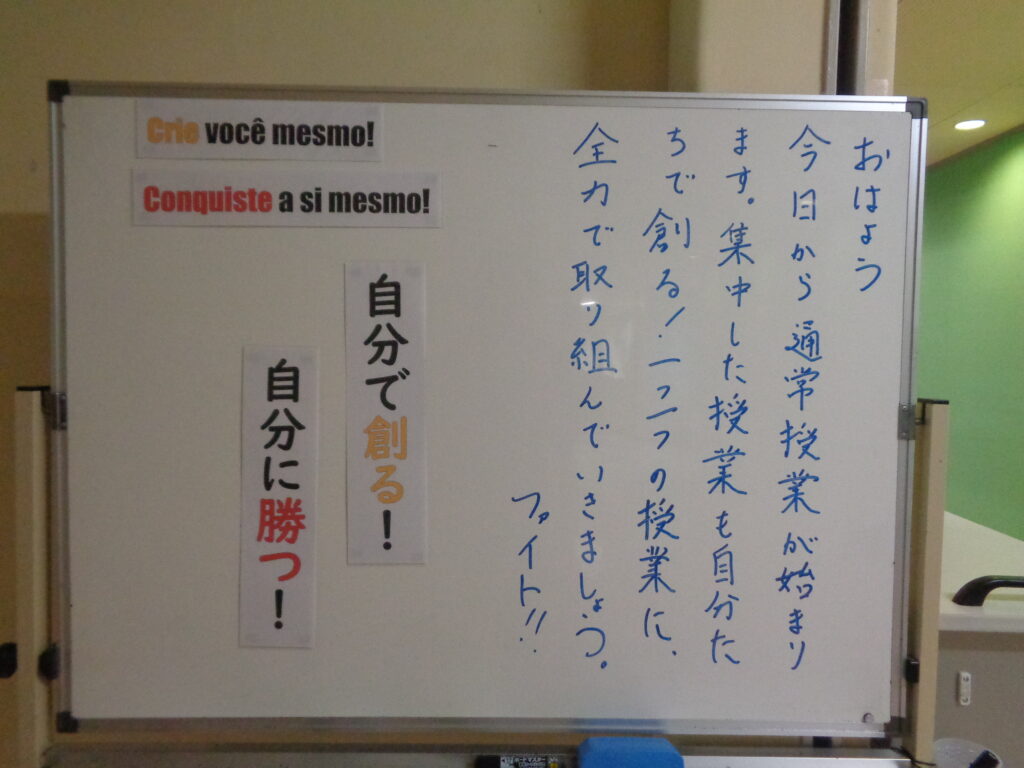 Crie você mesmo!
Conquiste a si mesmo!
おはよう
今日から通常授業が始まり
ます。集中した授業も自分た
ちで創る！一つ一つの授業に、
全力で取り組んでいきましょう。
ファイト!!
自分で創る！
自分に勝つ！
ボードマスター